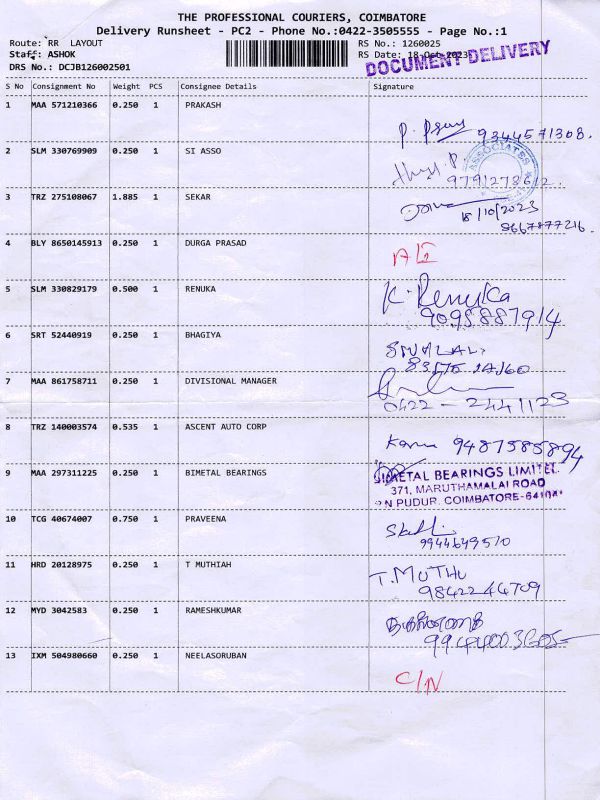 THE PROFESSIONAL COURIERS, COIMBATORE
Delivery Runsheet - PC2 - Phone No.:0422-3505555 - Page No.:1
Route: RR LAYOUT RS No.: 1260025
Staff: ASHOK RS Date: 18-Oct-2023
DOCUMENT DELIVERY
DRS No.: DCJB126002501
S No Consignment No Weight PCS Consignee Details Signature
1 MAA 571210366 0.250 1 PRAKASH
9344571308.
2 SLM 330769909 0.250 1 SI ASSO
ASSOCIATES
9791278612.
3 TRZ 275108067 1.885 1 SEKAR
18/10/2023
8667877216.
4 BLY 8650145913 0.250 1 DURGA PRASAD
5 SLM 330829179 0.500 1 RENUKA
K. Renuka
9095887914
6 SRT 52440919 0.250 1 BHAGIYA
7 MAA 861758711 0.250 1 DIVISIONAL MANAGER
0422 - 2441123
8 TRZ 140003574 0.535 1 ASCENT AUTO CORP
9487585894
9 MAA 297311225 0.250 1 BIMETAL BEARINGS
BIMETAL BEARINGS LIMITED.
371, MARUTHAMALAI ROAD
N PUDUR, COIMBATORE-641041
10 TCG 40674007 0.750 1 PRAVEENA
9944649510
11 HRD 20128975 0.250 1 T MUTHIAH
T. MUTHU
9842244709
12 MYD 3042583 0.250 1 RAMESHKUMAR
13 IXM 504980660 0.250 1 NEELASORUBAN
C/N